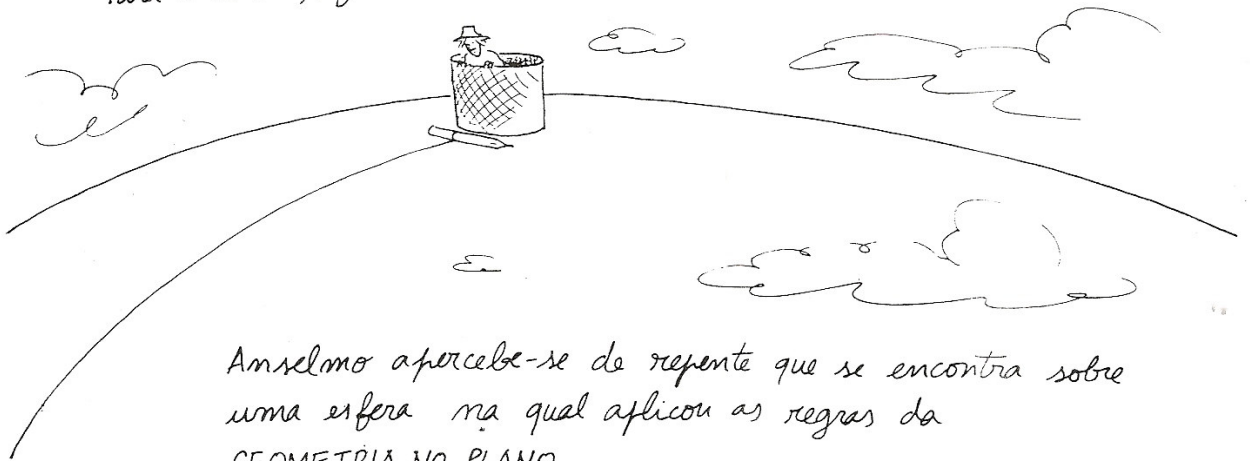 Anselmo apercebe-se de repente que se encontra sobre
uma esfera na qual aplicou as regras da
GEOMETRIA NO PLANO